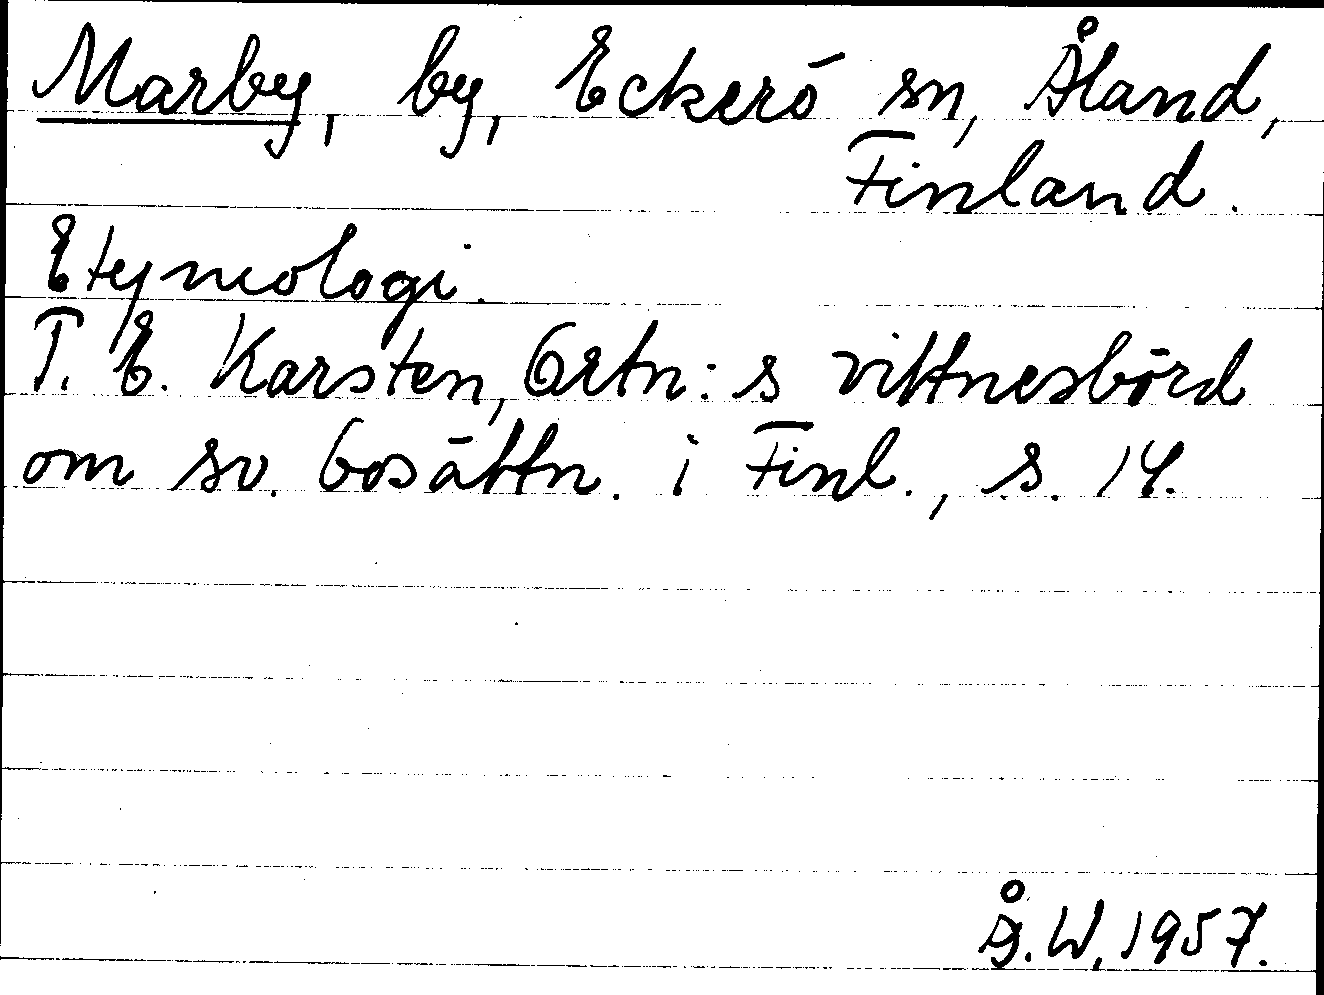 Marby, by, Eckerö sn, Åland,
Finland.
Etymologi.
T. E. Karsten, Ortn:s vittnesbörd
om sv. bosättn. i Finl., s. 14.
Å.W. 1957.